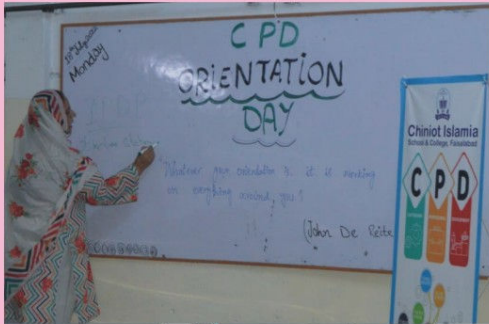 Monday
CPD
ORIENTATION
DAY
IPDP
"Whatever your orientation is, it is working
on everything around you"
(John De Peite
Chiniot Islamia
School & College, Faisalabad
C P D